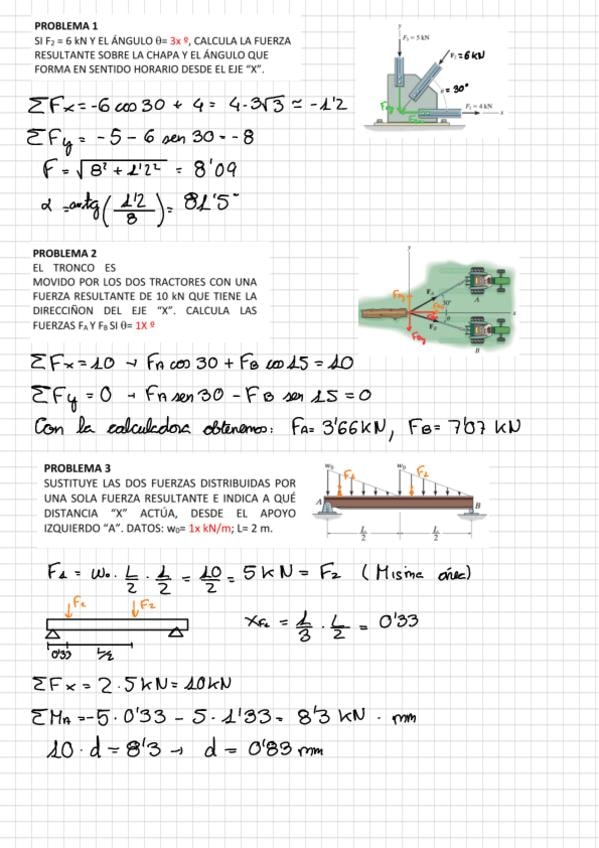 PROBLEMA 1
SI F₂ = 6 kN Y EL ÁNGULO θ= 3x º, CALCULA LA FUERZA
RESULTANTE SOBRE LA CHAPA Y EL ÁNGULO QUE
FORMA EN SENTIDO HORARIO DESDE EL EJE “X”.
y
F₃ = 5 kN
F₂ = 6 kN
θ = 30°
F₁ = 4 kN
x
ΣFx = -6 cos 30 + 4 = 4-3√3 ≃ -1'2
ΣFy = -5 - 6 sen 30 = -8
F = √8² + 1'2² = 8'09
α = arctg(1'2/8) = 81'5°
PROBLEMA 2
EL TRONCO ES
MOVIDO POR LOS DOS TRACTORES CON UNA
FUERZA RESULTANTE DE 10 kN QUE TIENE LA
DIRECCIÑON DEL EJE “X”. CALCULA LAS
FUERZAS Fₐ Y F_B SI θ= 1X º
y
F_A
30°
A
x
θ
F_B
B
ΣFx = 10 → F_A cos 30 + F_B cos 15 = 10
ΣFy = 0 → F_A sen 30 - F_B sen 15 = 0
Con la calculadora obtenemos: F_A = 3'66 kN, F_B = 7'07 kN
PROBLEMA 3
SUSTITUYE LAS DOS FUERZAS DISTRIBUIDAS POR
UNA SOLA FUERZA RESULTANTE E INDICA A QUÉ
DISTANCIA “X” ACTÚA, DESDE EL APOYO
IZQUIERDO “A”. DATOS: w₀= 1x kN/m; L= 2 m.
w₀ F₁ w₀ F₂
A B
L/2 L/2
F₁ = w₀ · L/2 · 1/2 = 10/2 = 5 kN = F₂ (Misma área)
F₁ F₂
0'33 L/2
x_F₁ = 1/3 · L/2 = 0'33
ΣFx = 2 · 5 kN = 10 kN
ΣM_A = -5 · 0'33 - 5 · 1'33 = 8'3 kN · mm
10 · d = 8'3 → d = 0'83 mm